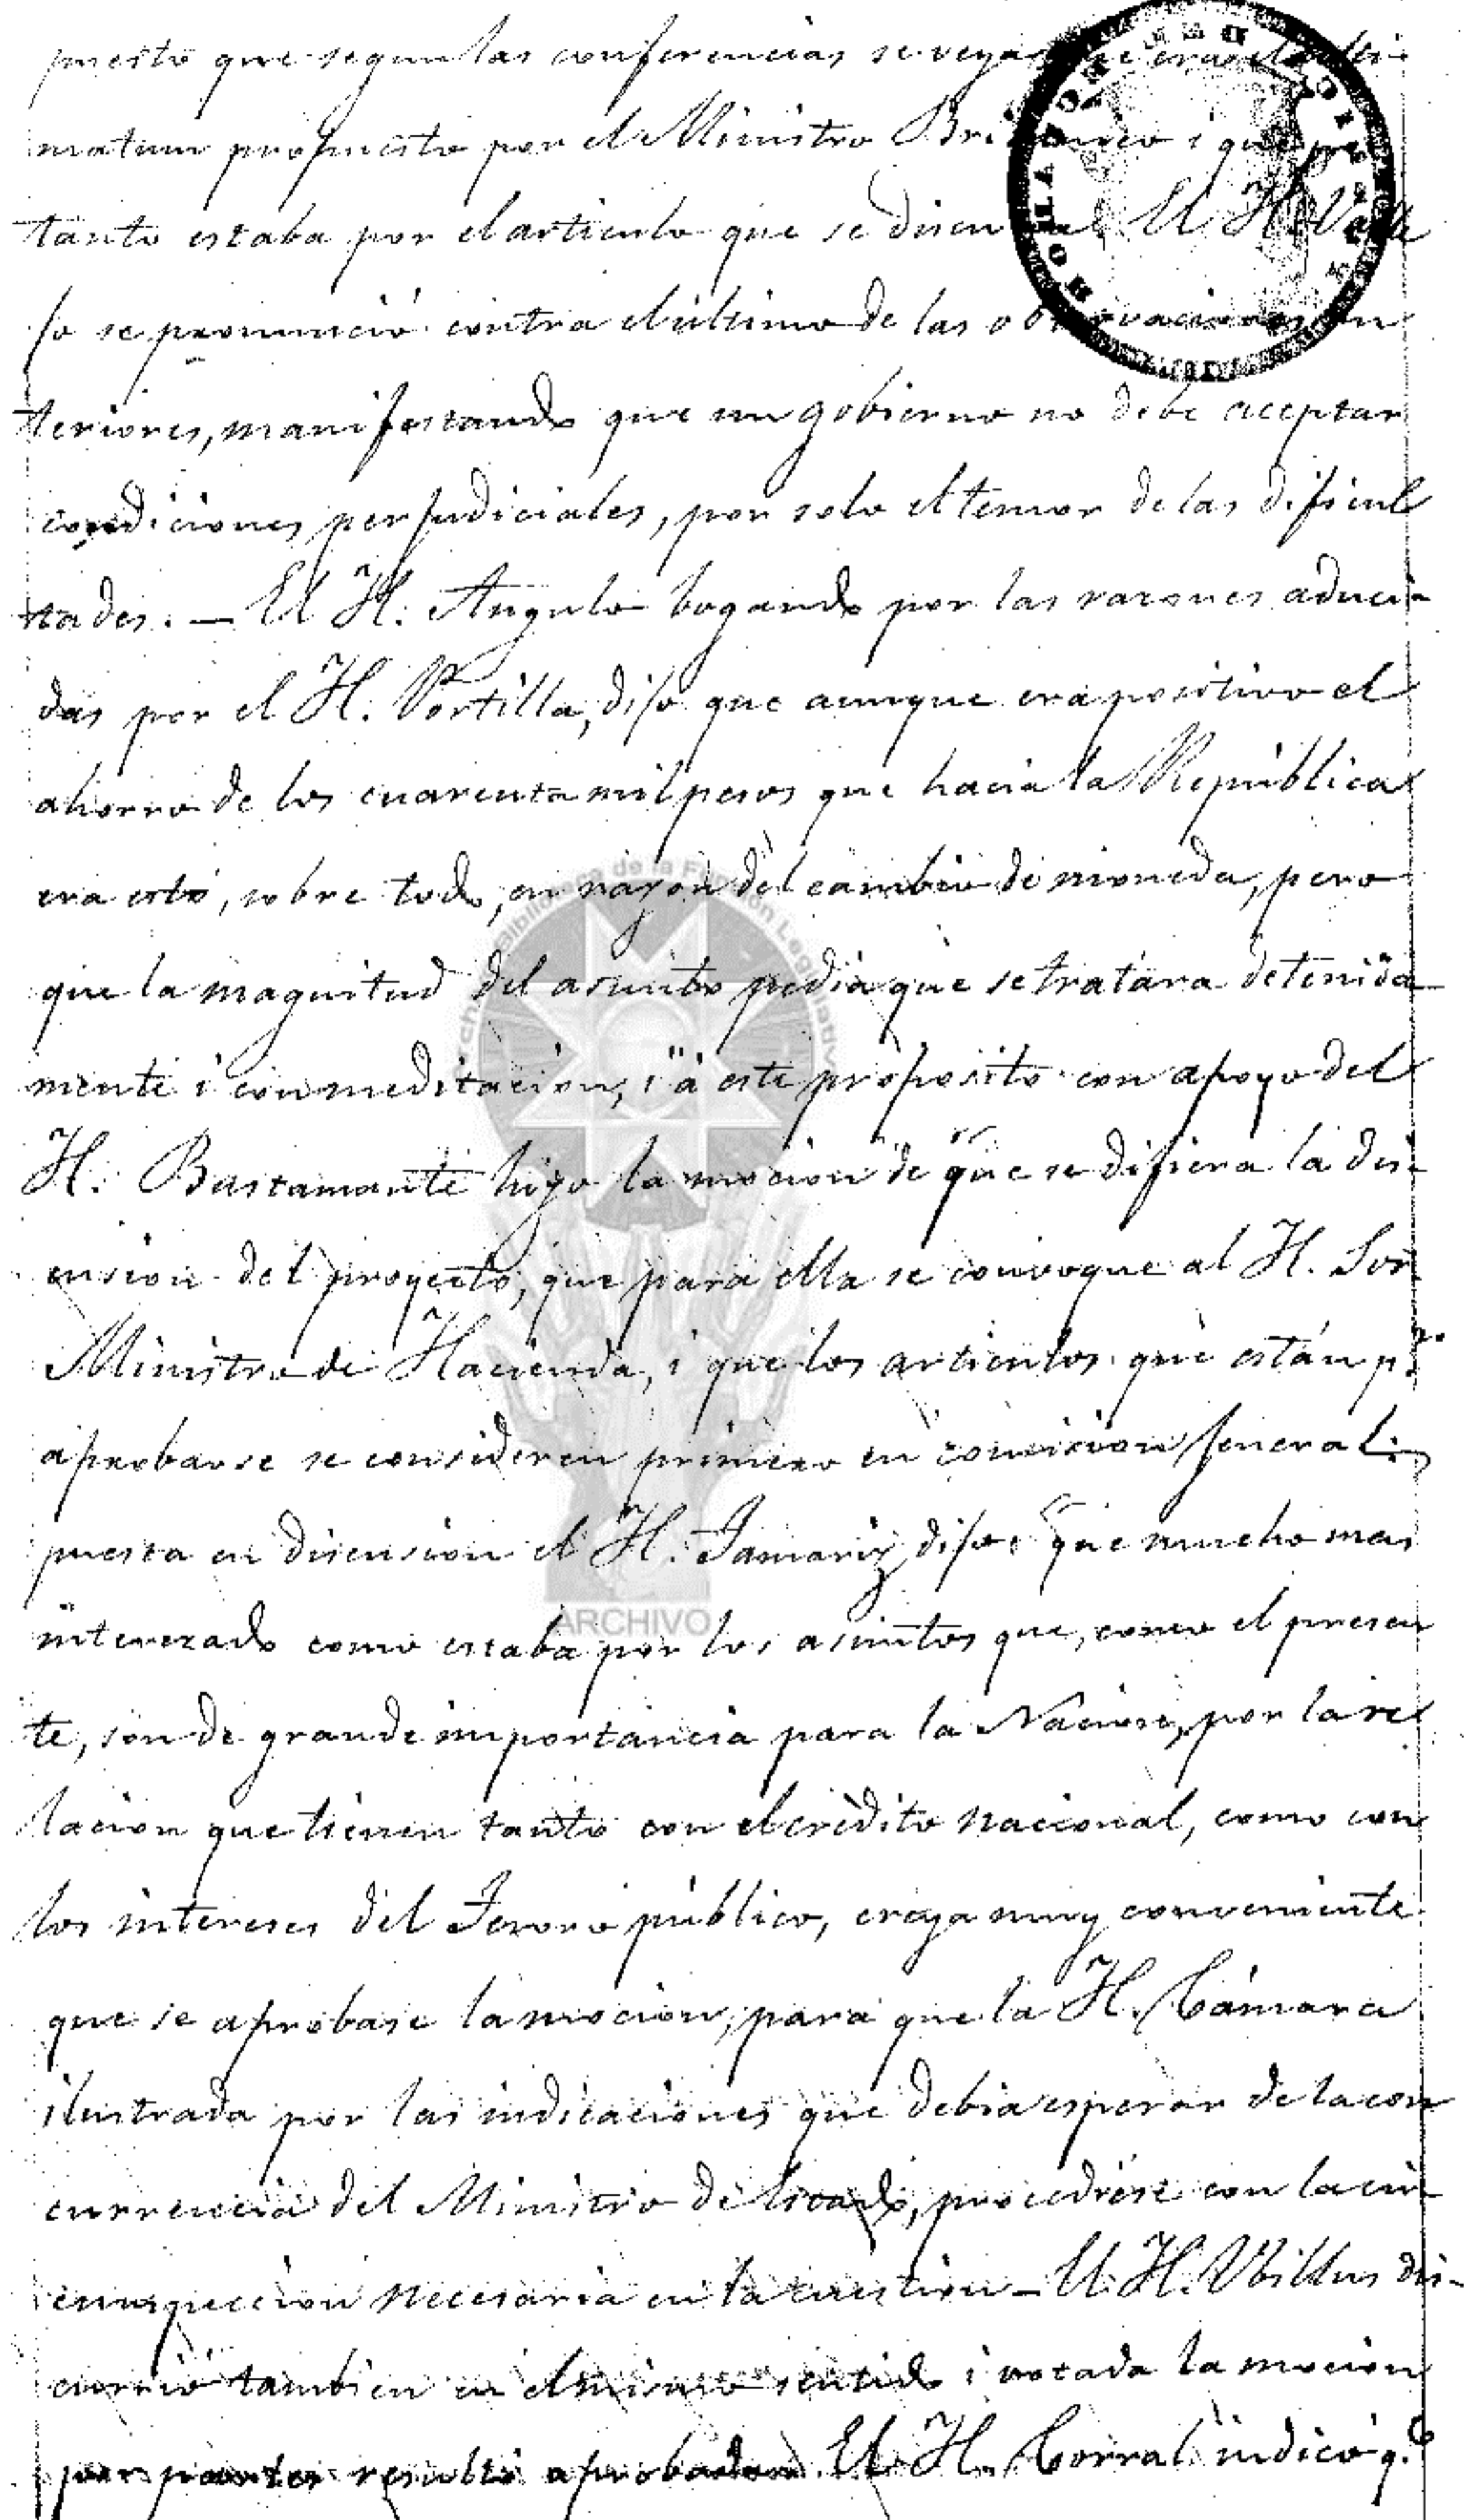 puesto que segun las conferencias se veya que era el ulti-
matum propuesto por el Ministro Británico i que por
tanto estaba por el articulo que se discutia. El H. Valle
jo se pronunció contra el último de las observaciones an
teriores, manifestando que un gobierno no debe aceptar
condiciones perjudiciales, por solo el temor de las dificul
tades. — El H. Angulo bogando por las razones aduci-
das por el H. Portilla, dijo que aunque era positivo el
ahorro de los cuarenta mil pesos que hacia la República
era esto, sobre todo, en razon del cambio de moneda, pero
que la magnitud del asunto pedia que se tratara detenida
mente i con meditacion, i á este proposito con apoyo del
H. Bustamante hizo la mocion de que se difiera la dis-
cusion del proyecto, que para ella se convoque al H. Sor.
Ministro de Hacienda, i que los articulos que están pr.
aprobarse se consideren primero en comision jeneral:
puesta en discusion el H. Tamariz dijo: que mucho mas
interezado como estaba por los asuntos que, como el presen
te, son de grande importancia para la Nacion, por la re
lacion que tienen tanto con el crédito nacional, como con
los intereses del Tesoro público, creya muy conveniente
que se aprobase la mocion, para que la H. Cámara
ilustrada por las indicaciones que debia esperar de la con
currencia del Ministro de Estado, procediese con la cir-
cunspeccion necesaria en la cuestion — El H. Ubillus dis-
currió tambien en el mismo sentido i votada la mocion
por partes resultó aprobada. El H. Corral indicó q.e
Archivo Biblioteca de la Función Legislativa
ARCHIVO